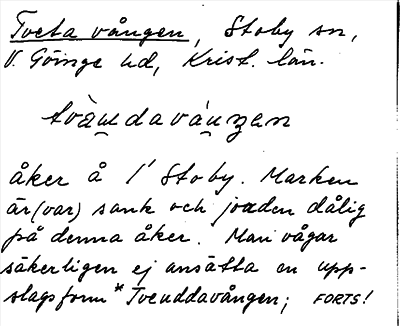 Tveta vången, Stoby sn,
V. Göinge hd, Krist. län.
åker å 1/ Stoby. Marken
är (var) sank och jorden dålig
på denna åker. Man vågar
säkerligen ej ansätta en upp-
slagsform *Tveuddavången; FORTS!